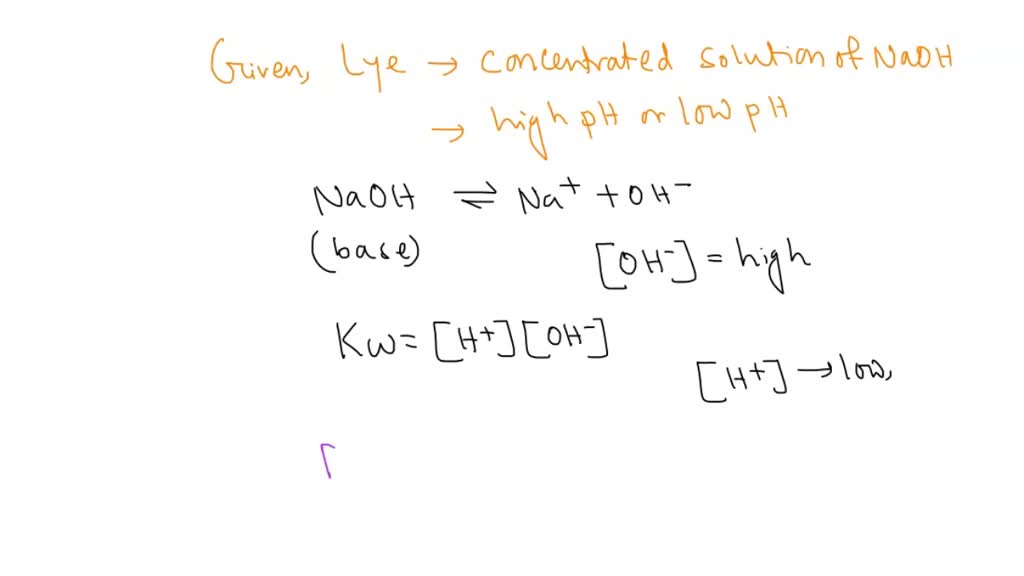 Given, Lye → concentrated solution of NaOH
→ high pH or low pH
NaOH ⇌ Na⁺ + OH⁻
(base)
[OH⁻] = high
Kw = [H⁺][OH⁻]
[H⁺] → low,
[